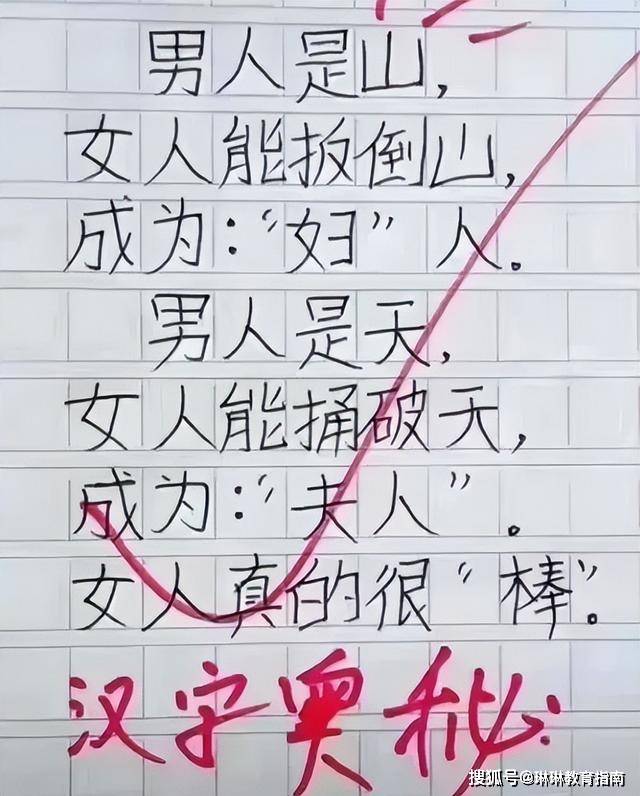 男人是山，
女人能扳倒山，
成为：“妇”人。
男人是天，
女人能捅破天，
成为：“夫人”。
女人真的很“棒”。
汉字奥秘
搜狐号@琳琳教育指南